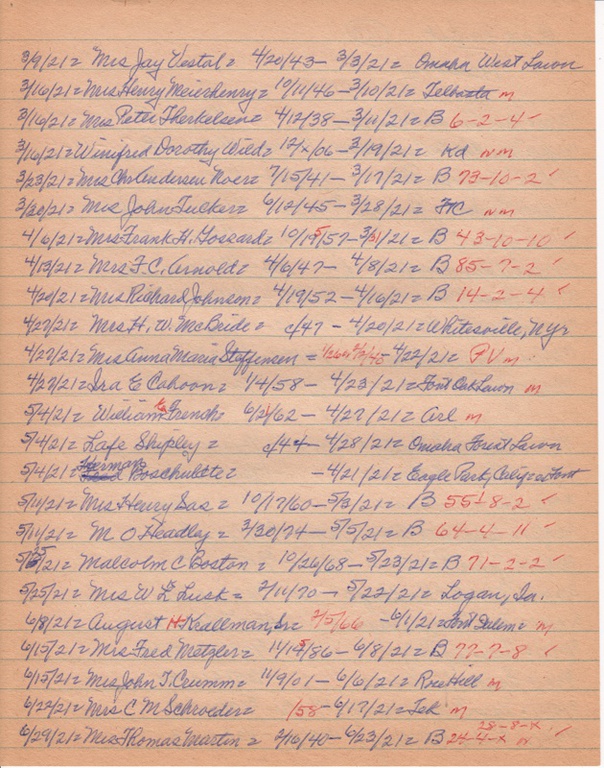 3/9/21= Mrs Jay Vestal= 4/20/43- 3/3/21= Omaha West Lawn
3/16/21= Mrs Henry Meierhenry= 10/11/46 -3/10/21= m
3/16/21= Mrs Peter Therkelsen= 4/12/38- 3/11/21= B 6-2-4 ✓
3/16/21= Winifred Dorothy Wild= 12/x/06- 3/19/21= Kd m
3/23/21= Mrs Chr Andersen Noer= 7/15/41- 3/17/21= B 73-10-2 ✓
3/30/21= Mrs John Tucker= 6/12/45- 3/28/21= HC m
4/6/21= Mrs Frank H. Gossard= 10/15/57- 3/31/21= B 43-10-10 ✓
4/13/21= Mrs F.C. Arnold= 4/6/47- 4/8/21= B 85-7-2 ✓
4/20/21= Mrs Richard Johnson= 4/19/52- 4/16/21= B 14-2-4 ✓
4/27/21= Mrs H. W. McBride= c/47 - 4/20/21= Whitesville, N.Y.
4/27/21= Mrs Anna Maria Steffensen = 4/22/21= PV m
4/27/21= Ira E Cahoon= 1/4/58- 4/23/21= Font Oak Lawn m
5/4/21= William French= 6/21/62- 4/27/21= Arl m
5/4/21= Lafe Shipley= c/44- 4/28/21= Omaha Forest Lawn
5/4/21= Herman Boschulte= -4/21/21= Eagle Park, Font
5/11/21= Mrs Henry Sas= 10/17/60- 5/3/21= B 55-8-2 ✓
5/11/21= M. O. Headley= 3/30/74- 5/5/21= B 64-4-11 ✓
5/25/21= Malcolm C Boston= 10/26/68- 5/23/21= B 71-2-2 ✓
5/25/21= Mrs W L Lusk= 2/11/70- 5/22/21= Logan, Ia.
6/8/21= August H Krallman, Sr= 2/5/66 -6/1/21= Font Salem= m
6/15/21= Mrs Fred Metzler= 11/15/86- 6/8/21= B 77-7-8 ✓
6/15/21= Mrs John T. Crumm= 11/9/01- 6/6/21= Rose Hill m
6/22/21= Mrs C M Schroeder= /58- 6/17/21= Tek m
28-8-x
6/29/21= Mrs Thomas Martin= 2/16/40- 6/23/21= B 24-4-x